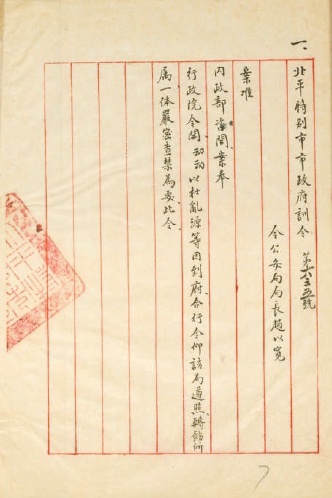 一、
北平特别市市政府訓令 第一八三五號
令公安局局長趙以寬
案准
内政部咨開案奉
行政院令開
以杜亂源等因到府合行令仰該局遵照轉飭所
属一体嚴密查禁為要此令
7